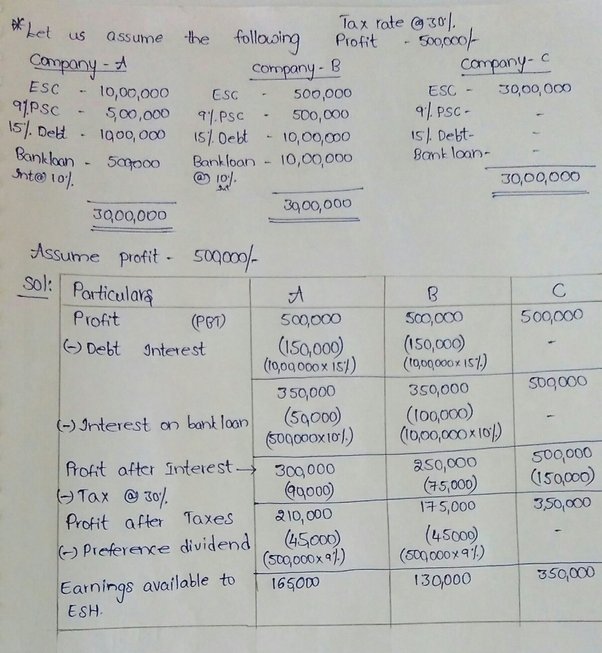 Tax rate @ 30%.
* Let us assume the following Profit - 500,000/-
Company - A Company - B Company - C
ESC - 10,00,000 ESC - 500,000 ESC - 30,00,000
9% PSC - 5,00,000 9% PSC - 500,000 9% PSC - -
15% Debt - 10,00,000 15% Debt - 10,00,000 15% Debt- -
Bank loan - 500,000 Bank loan - 10,00,000 Bank loan- -
Int @ 10%. @ 10%. Int
30,00,000 30,00,000 30,00,000
Assume profit - 500,000/-
Sol: Particulars A B C
Profit (PBT) 500,000 500,000 500,000
(-) Debt Interest (150,000) (150,000) -
(10,00,000 x 15%) (10,00,000 x 15%)
350,000 350,000 500,000
(-) Interest on bank loan (50,000) (100,000) -
(500,000x10%) (10,00,000 x 10%)
Profit after Interest → 300,000 250,000 500,000
(-) Tax @ 30% (90,000) (75,000) (150,000)
Profit after Taxes 210,000 175,000 3,50,000
(-) Preference dividend (45,000) (45000) -
(500,000x9%) (500,000x9%)
Earnings available to 165,000 130,000 350,000
ESH.